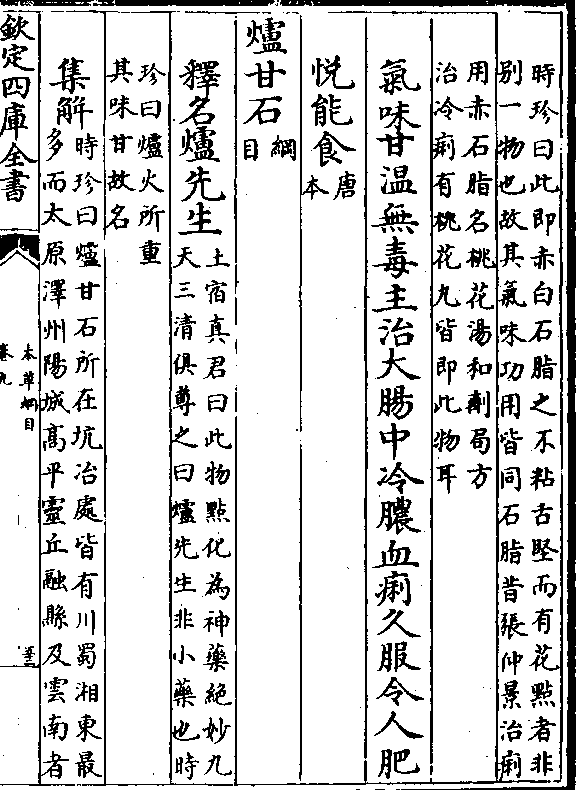 時珍曰此即赤白石脂之不粘舌堅而有花點者非
別一物也故其氣味功用皆同石脂昔張仲景治痢
用赤石脂名桃花湯和劑局方
治冷痢有桃花丸皆即此物耳
氣味甘温無毒主治大腸中冷膿血痢久服令人肥
悦能食唐
本
爐甘石綱
目
釋名爐先生土宿真君曰此物點化為神藥絶妙九
天三清俱尊之曰爐先生非小藥也時
珍曰爐火所重
其味甘故名
集解時珍曰爐甘石所在坑冶處皆有川蜀湘東最
多而太原澤州陽城高平靈丘融縣及雲南者
欽定四庫全書
本草綱目
卷九